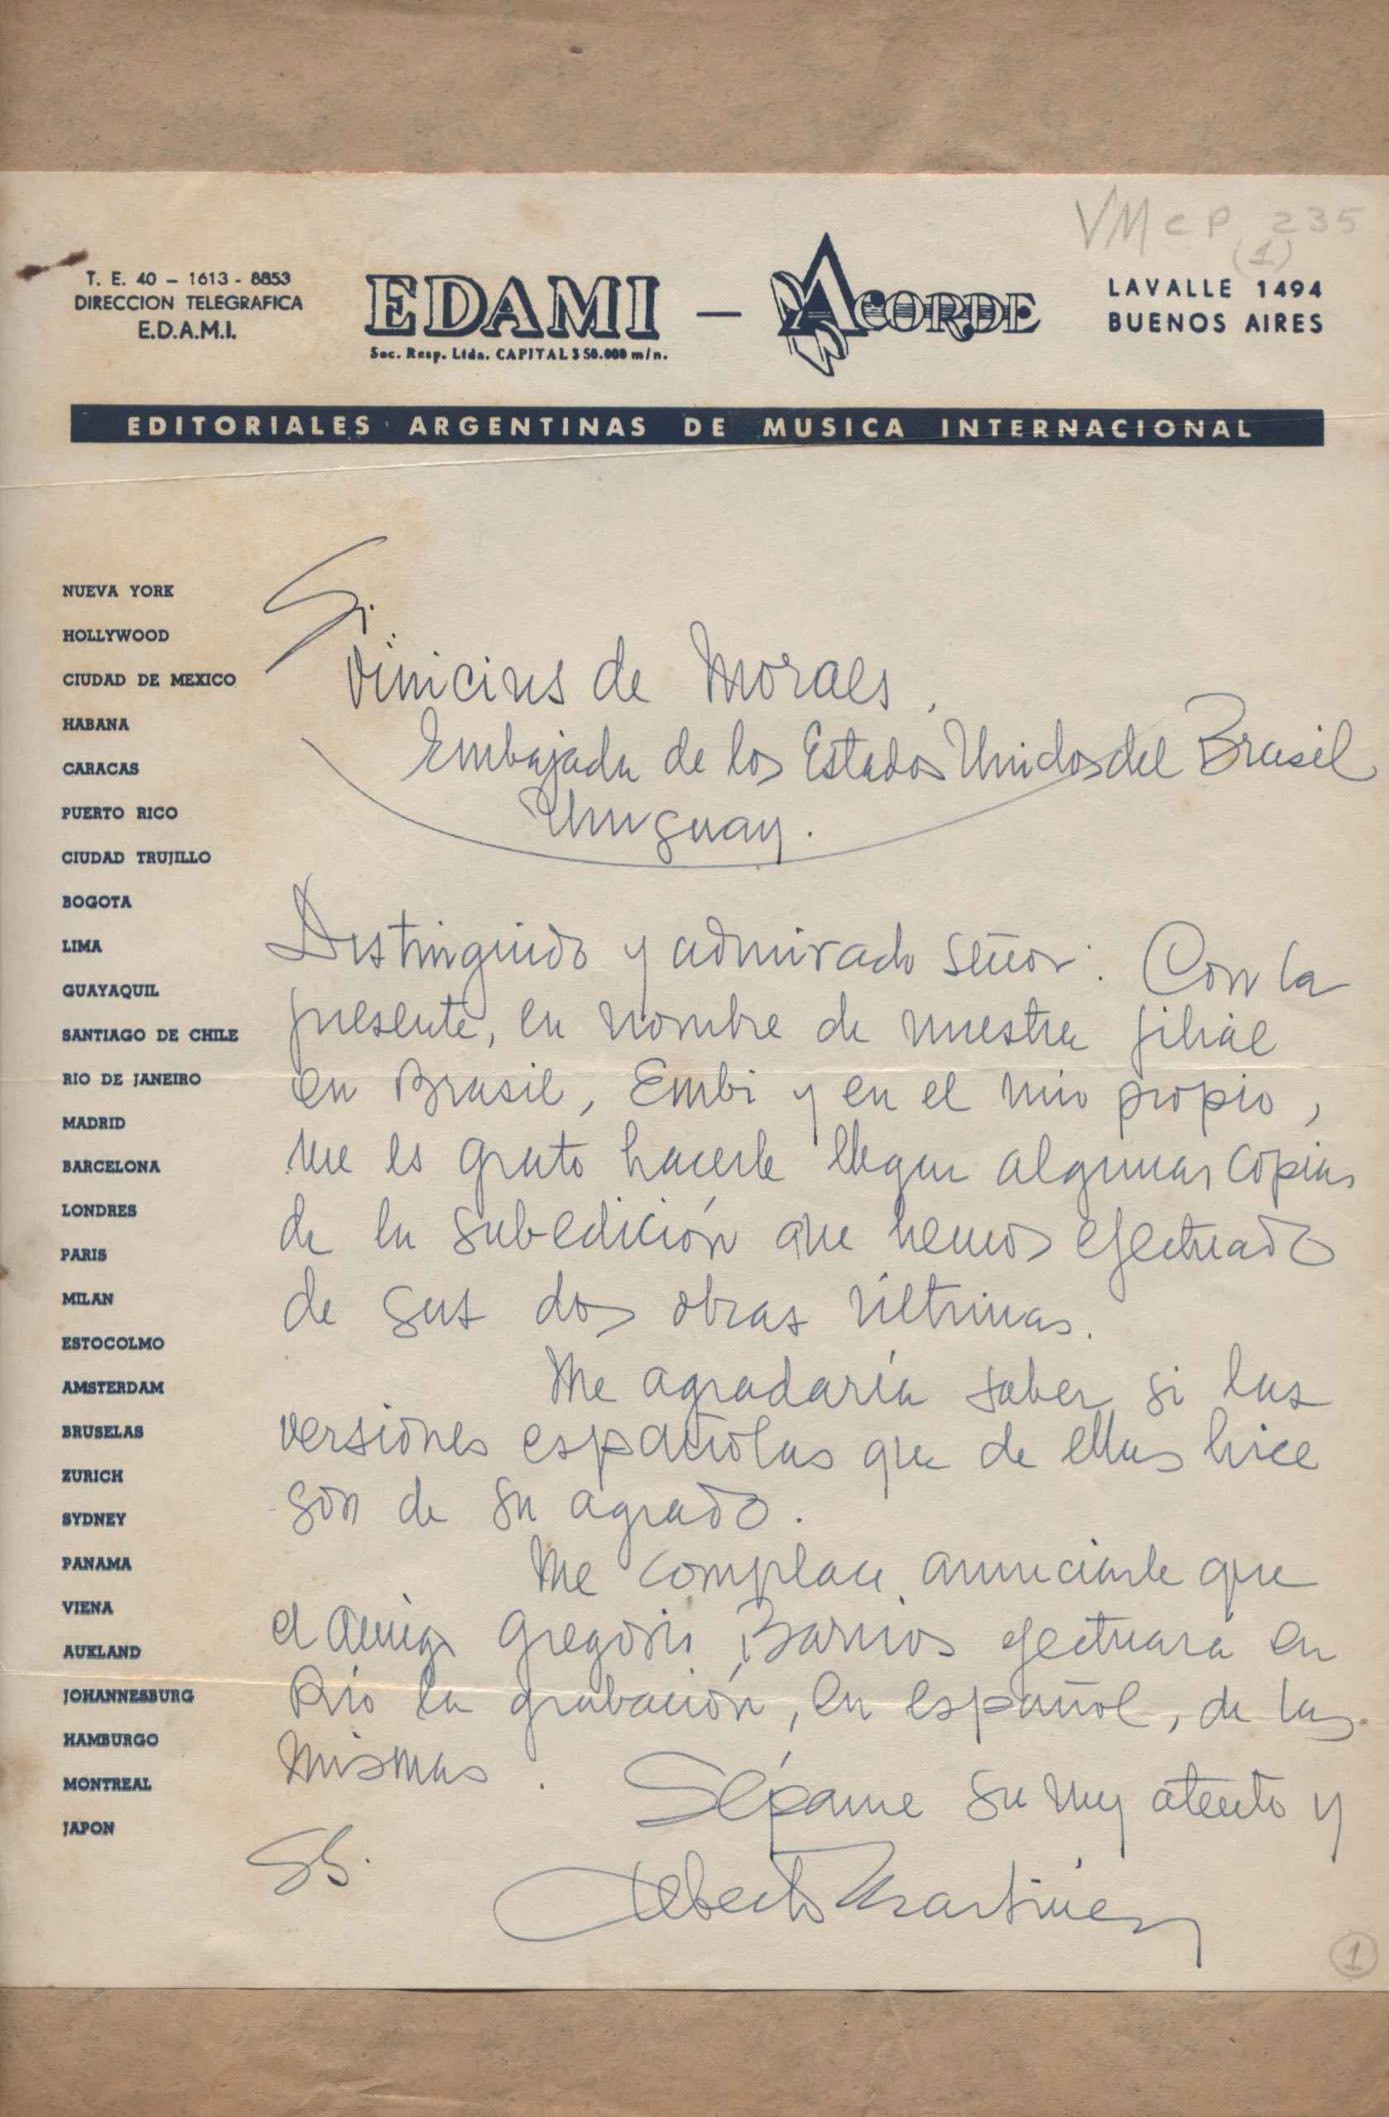 VMCP 235
(1)
T. E. 40 – 1613 - 8853
DIRECCION TELEGRAFICA
E.D.A.M.I.
EDAMI – ACORDE
Soc. Resp. Ltda. CAPITAL $ 50.000 m/n.
LAVALLE 1494
BUENOS AIRES
EDITORIALES ARGENTINAS DE MUSICA INTERNACIONAL
NUEVA YORK
HOLLYWOOD
CIUDAD DE MEXICO
HABANA
CARACAS
PUERTO RICO
CIUDAD TRUJILLO
BOGOTA
LIMA
GUAYAQUIL
SANTIAGO DE CHILE
RIO DE JANEIRO
MADRID
BARCELONA
LONDRES
PARIS
MILAN
ESTOCOLMO
AMSTERDAM
BRUSELAS
ZURICH
SYDNEY
PANAMA
VIENA
AUKLAND
JOHANNESBURG
HAMBURGO
MONTREAL
JAPON
Sr.
Vinicius de Moraes,
Embajada de los Estados Unidos del Brasil
Uruguay.
Distinguido y admirado señor: Con la
presente, en nombre de nuestra filial
en Brasil, Embi y en el mio propio,
me es grato hacerle llegar algunas copias
de la subedición que hemos efectuado
de sus dos obras últimas.
Me agradaría saber si las
versiones españolas que de ellas hice
son de su agrado.
Me complace anunciarle que
el amigo Gregorio Barrios efectuará en
Río la grabación, en español, de las
mismas. Sépame su muy atento y
SS.
Alberto Martinez
1